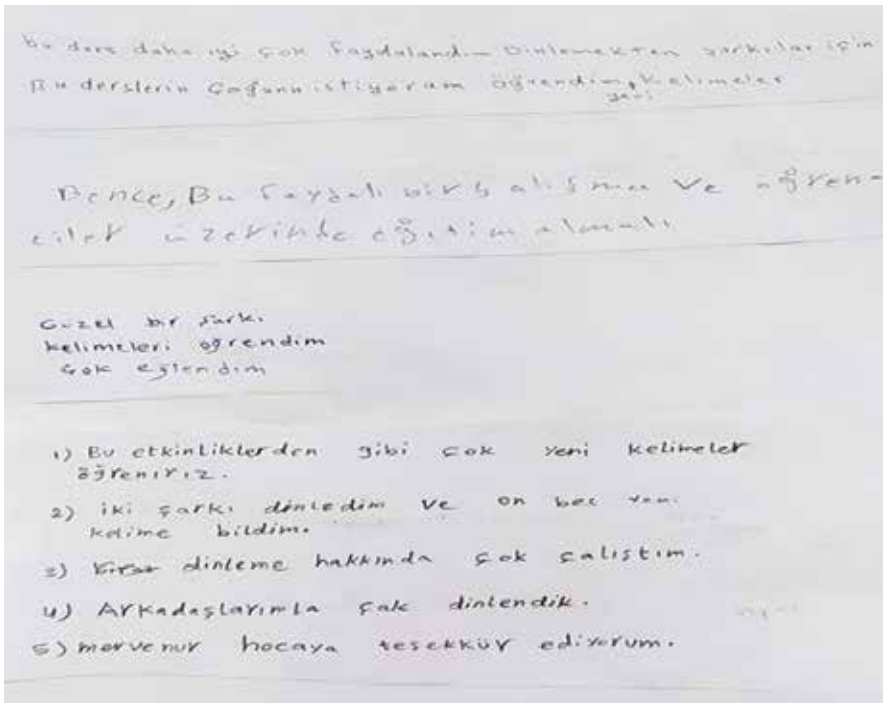 bu ders daha iyi çok faydalandım Dinlemekten şarkılar için
Bu derslerin Çoğunu istiyorum öğrendim, Kelimeler
yeni
Bence, Bu faydalı bir çalışma Ve öğren-
ciler üzerinde eğitim almalı.
Güzel bir şarkı
kelimeleri öğrendim
çok eğlendim
1) Bu etkinliklerden gibi çok yeni kelimeler
öğreniriz.
2) iki şarkı dinledim ve on beş yeni
kelime bildim.
3) dinleme hakkında çok çalıştım.
4) Arkadaşlarımla çok dinlendik.
5) mervenur hocaya teşekkür ediyorum.